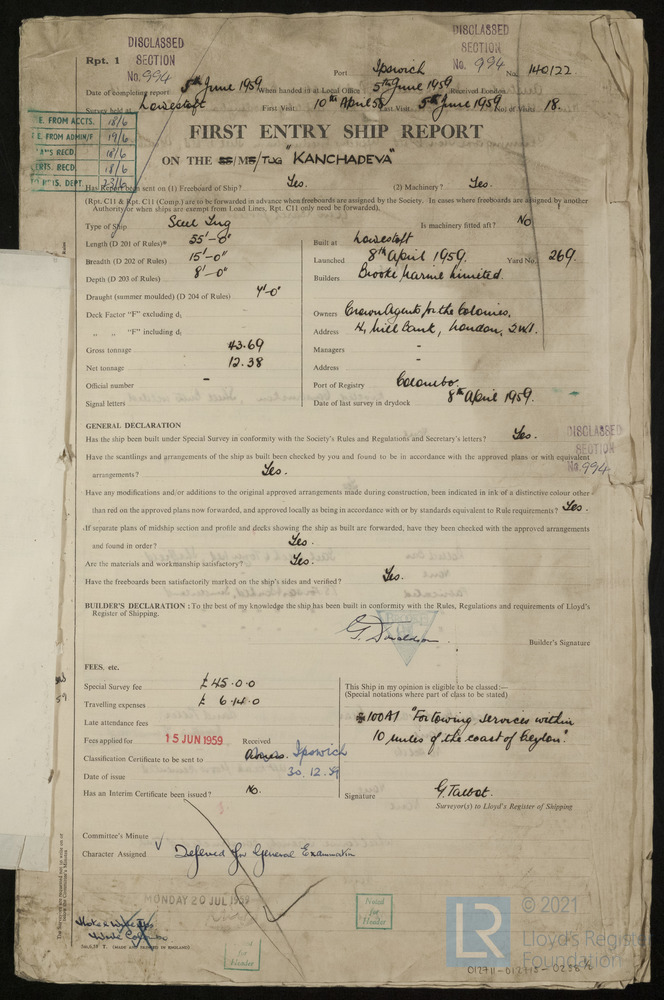 DISCLASSED
SECTION
No. 994
DISCLASSED
SECTION
No. 994
Rpt. 1
Port Ipswich No. 140122
Date of completing report 5th June 1959 When handed in at Local Office 5th June 1959 Received London
Survey held at Lowestoft First Visit 10th April 58 Last Visit 5th June 1959 No. of Visits 18.
E. FROM ACCTS. 18/6
E. FROM ADMIN/F 19/6
RECD. 18/6
RTS. RECD. 18/6
TS. DEPT. 23/6
FIRST ENTRY SHIP REPORT
ON THE SS/MS/TUG "KANCHADEVA"
Has Report been sent on (1) Freeboard of Ship? Yes. (2) Machinery? Yes.
(Rpt. C11 & Rpt. C11 (Comp.) are to be forwarded in advance when freeboards are assigned by the Society. In cases where freeboards are assigned by another
Authority or when ships are exempt from Load Lines, Rpt. C11 only need be forwarded).
Type of Ship Steel Tug Is machinery fitted aft? No
Length (D 201 of Rules)* 55'-0" Built at Lowestoft
Breadth (D 202 of Rules) 15'-0" Launched 8th April 1959. Yard No. 269.
Depth (D 203 of Rules) 8'-0" Builders Brooke Marine Limited.
Draught (summer moulded) (D 204 of Rules) 4'-0"
Deck Factor "F" excluding d₁ Owners Crown Agents for the Colonies.
,, ,, "F" including d₁ Address 4, Millbank, London, SW1.
Gross tonnage 43.69 Managers -
Net tonnage 12.38 Address -
Official number - Port of Registry Colombo.
Signal letters Date of last survey in drydock 8th April 1959.
GENERAL DECLARATION
Has the ship been built under Special Survey in conformity with the Society's Rules and Regulations and Secretary's letters? Yes.
DISCLASSED
SECTION
No. 994
Have the scantlings and arrangements of the ship as built been checked by you and found to be in accordance with the approved plans or with equivalent
arrangements? Yes.
Have any modifications and/or additions to the original approved arrangements made during construction, been indicated in ink of a distinctive colour other
than red on the approved plans now forwarded, and approved locally as being in accordance with or by standards equivalent to Rule requirements? Yes.
If separate plans of midship section and profile and decks showing the ship as built are forwarded, have they been checked with the approved arrangements
and found in order? Yes.
Are the materials and workmanship satisfactory? Yes.
Have the freeboards been satisfactorily marked on the ship's sides and verified? Yes.
BUILDER'S DECLARATION : To the best of my knowledge the ship has been built in conformity with the Rules, Regulations and requirements of Lloyd's
Register of Shipping.
Builder's Signature
FEES, etc.
Special Survey fee £45.0.0
Travelling expenses £ 6.14.0
Late attendance fees
Fees applied for 15 JUN 1959 Received
Classification Certificate to be sent to Ipswich
Date of issue 30.12.59
Has an Interim Certificate been issued? No.
This Ship in my opinion is eligible to be classed:—
(Special notations where part of class to be stated)
100A1 "For towing services within
10 miles of the coast of Ceylon".
Signature G. Talbot.
Surveyor(s) to Lloyd's Register of Shipping
Committee's Minute
Character Assigned Deferred for General Examination
MONDAY 20 JUL 1959
Noted
for
Header
for
Header
(MADE AND PRINTED IN ENGLAND)
LR
© 2021
Lloyd's Register
Foundation
012711-012715-0258 ½